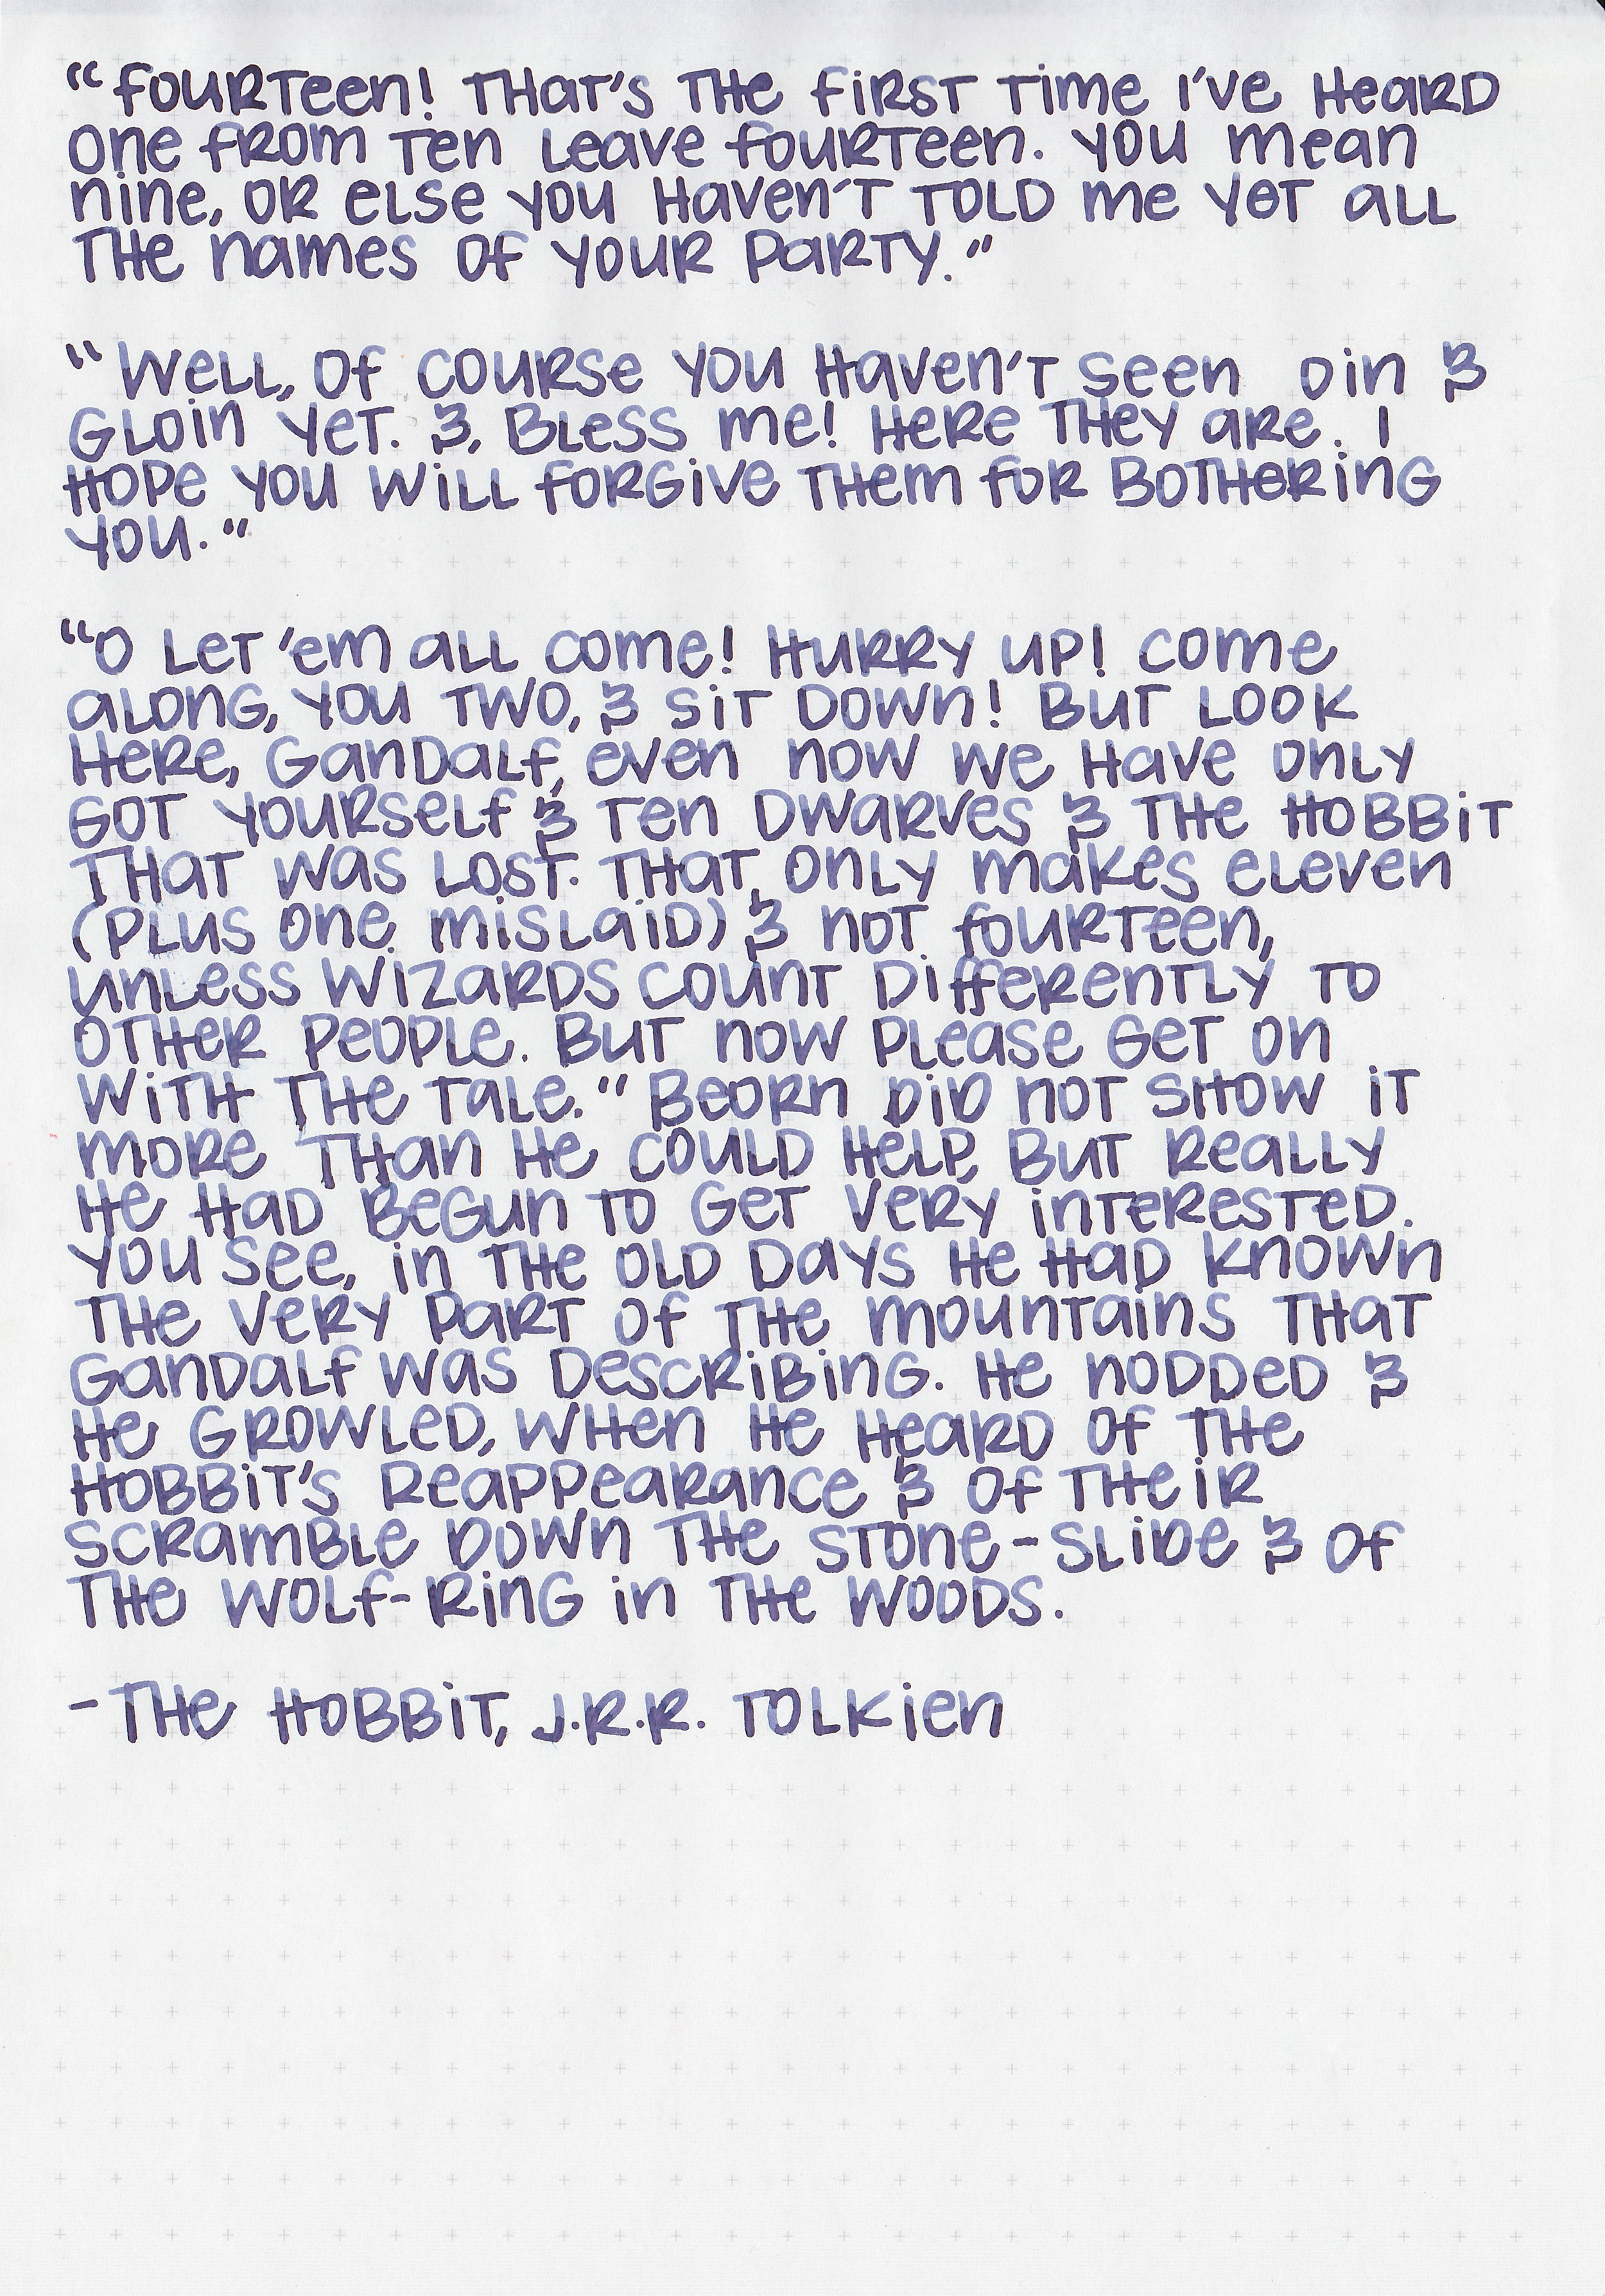 "Fourteen! That's the first time I've heard
one from ten leave fourteen. You mean
nine, or else you haven't told me yet all
the names of your party."
"Well, of course you haven't seen Oin &
Gloin yet. &, bless me! Here they are. I
hope you will forgive them for bothering
you."
"O let 'em all come! Hurry up! Come
along, you two, & sit down! But look
here, Gandalf, even now we have only
got yourself & ten dwarves & the hobbit
that was lost. That only makes eleven
(plus one mislaid) & not fourteen,
unless wizards count differently to
other people. But now please get on
with the tale." Beorn did not show it
more than he could help, but really
he had begun to get very interested.
You see, in the old days he had known
the very part of the mountains that
Gandalf was describing. He nodded &
he growled, when he heard of the
hobbit's reappearance & of their
scramble down the stone-slide & of
the wolf-ring in the woods.
-The Hobbit, J.R.R. Tolkien